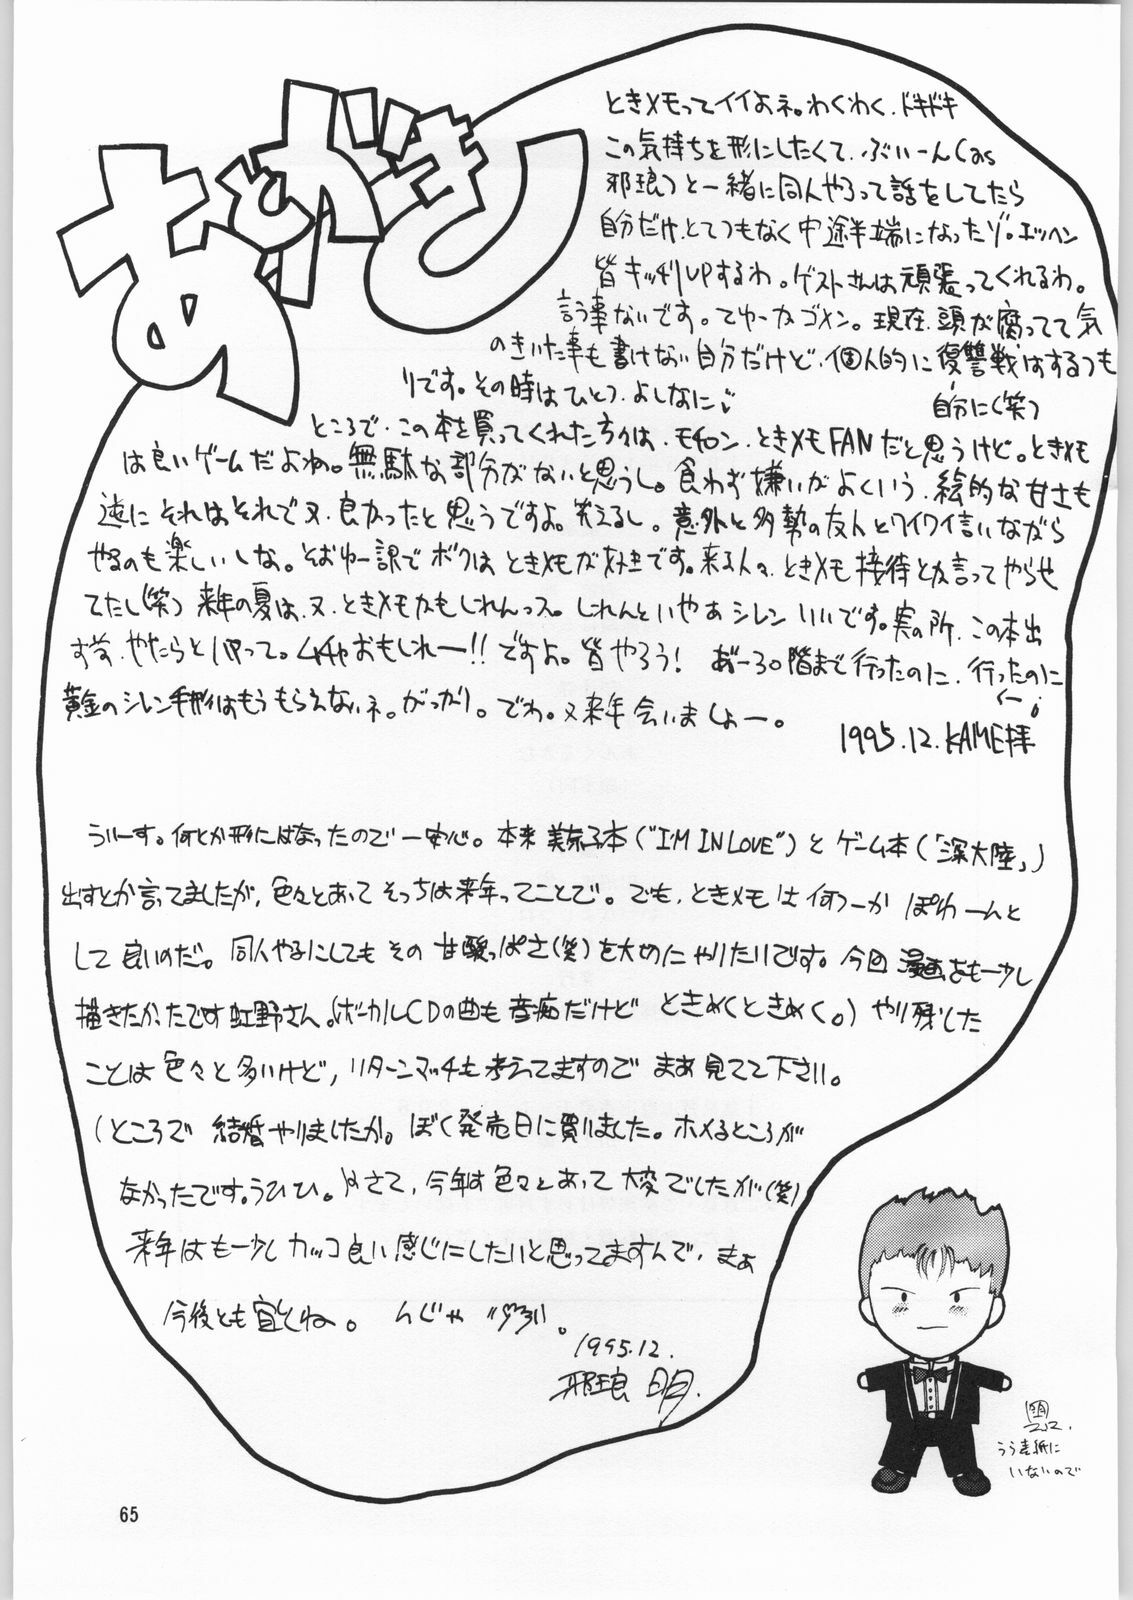 あとがき
ときメモってイイよネ。わくわく、ドキドキ
この気持ちを形にしたくて、ぶいーん(as
邪琅)と一緒に同人やろって話をしてたら
自分だけ、とてつもなく中途半端になったゾ。エッヘン
皆キッチリUPするわ。ゲストさんは頑張ってくれるわ。
言う事ないです。てゆーかゴメン。現在、頭が腐ってて気
のきいた事も書けない自分だけど、個人的に復讐戦はするつも
自分に(笑)
りです。その時はひとつ、よしなに
ところで、この本を買ってくれた方々は、モチロン、ときメモFANだと思うけど。ときメモ
は良いゲームだよね。無駄な部分がないと思うし。食わず嫌いがよくいう、絵的な甘さも
逆にそれはそれで又、良かったと思うですよ。笑えるし。意外と多勢の友人とワイワイ言いながら
やるのも楽しいしな。そおゆー訳でボクはときメモが好きです。来る人々、ときメモ接待とか言ってやらせ
てたし(笑) 来年の夏は、又、ときメモかもしれんっス。しれんといやあシレンいいです。実の所、この本出
ず、やたらとハマって。ムチャおもしれー!!ですよ。皆やろう! あーう30階まで行ったのに、行ったのに
黄金のシレン手形はもうもらえないネ。がっかり。でわ。又来年会いましょー。
1995.12.KAME拝
ういーす。何とか形にはなったので一安心。本来 美奈子本("I'M IN LOVE")とゲーム本(「深大陸」)
出すとか言ってましたが、色々とあってそっちは来年ってことで。でも、ときメモは何つーか ぽわーんと
して良いのだ。同人やるにしてもその甘酸っぱさ(笑)を大切にやりたいです。今回漫画をもー少し
描きたかったです虹野さん。(ボーカルCDの曲も音痴だけど ときめくときめく。) やり残した
ことは色々と多いけど、リターンマッチも考えてますのでまあ見てて下さい。
(ところで 結婚やりましたか。ぼく発売日に買いました。ホメるところが
なかったです。うひひ。) さて、今年は色々とあって大変でしたが(笑)
来年はもー少しカッコ良い感じにしたいと思ってますんで、まぁ
今後とも宜しくね。 んじゃ
1995.12.
邪琅 明.
うら表紙に
いないので
65